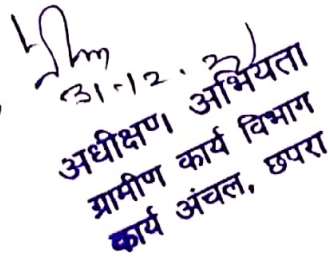 31.12.
अधीक्षण अभियंता
ग्रामीण कार्य विभाग
कार्य अंचल, छपरा